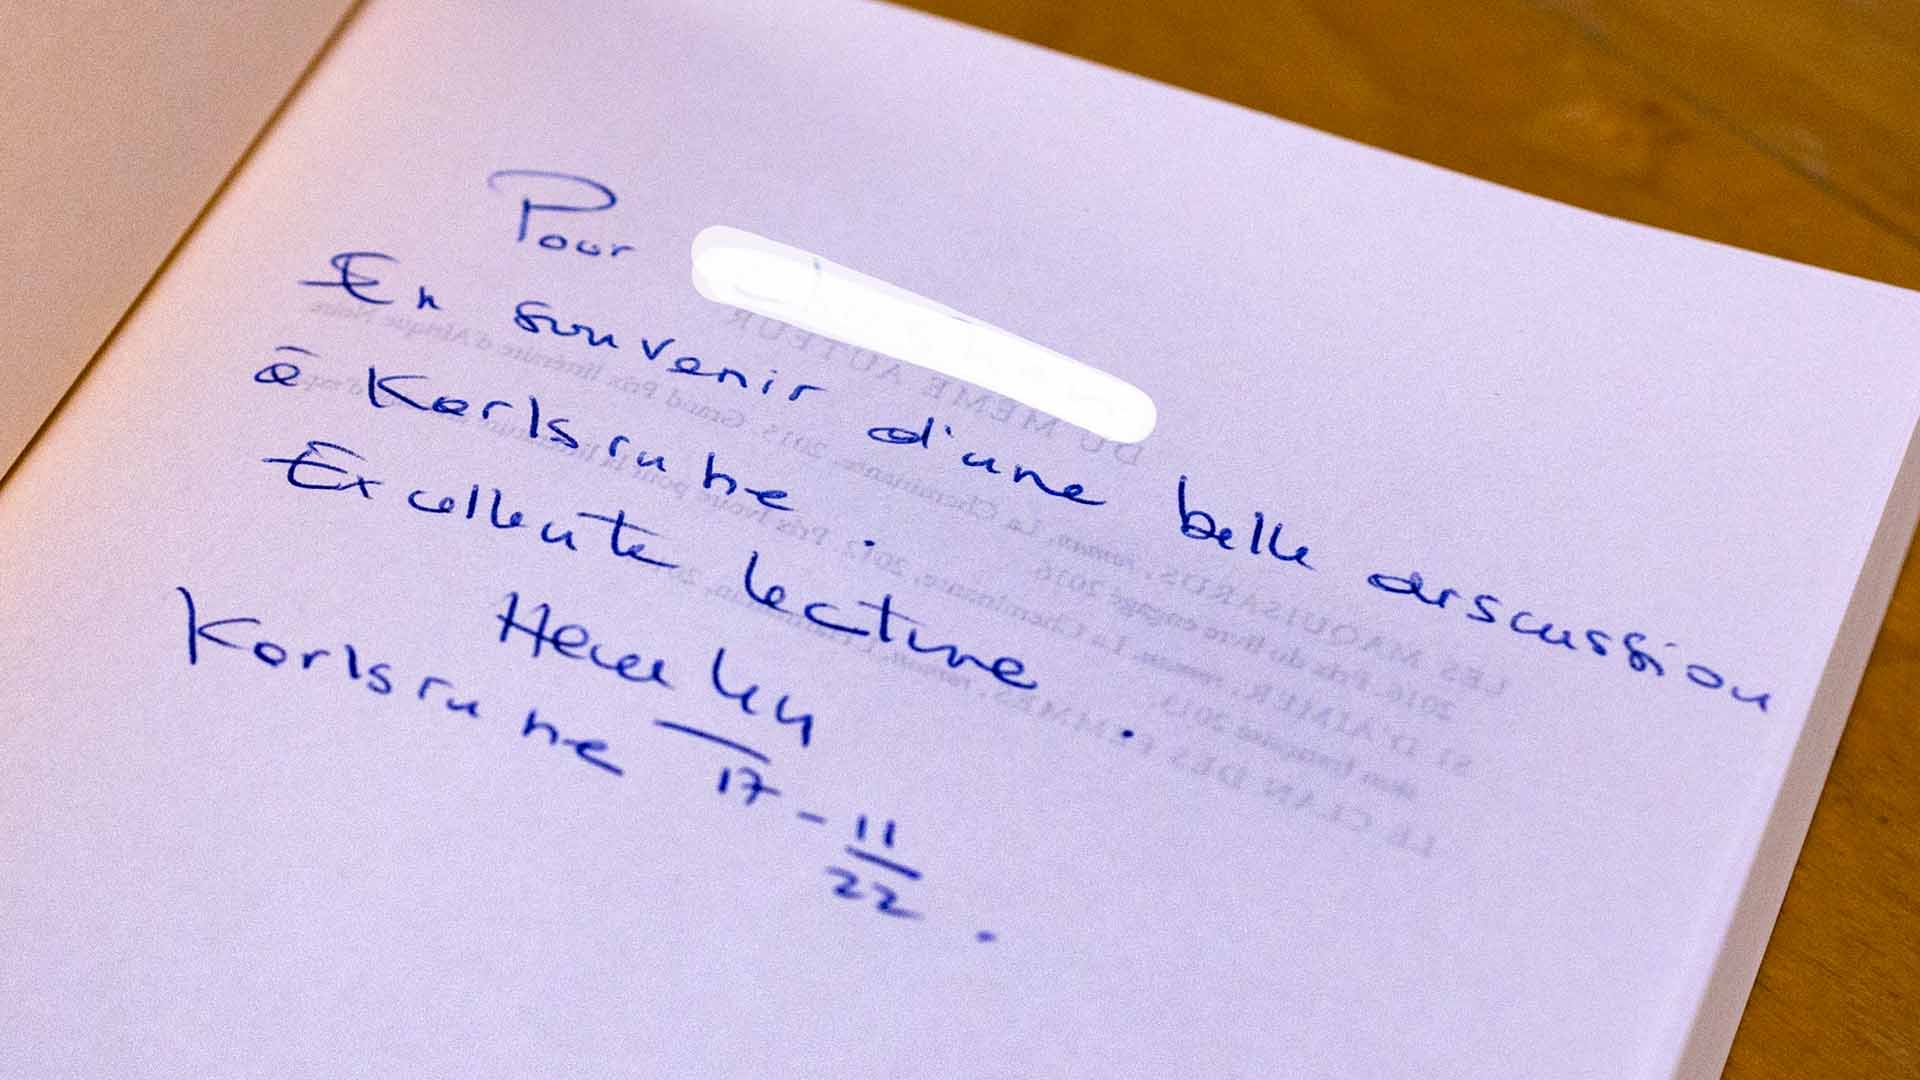 Pour
En souvenir d'une belle discussion
à Karlsruhe.
Excellente lecture.
Hemley
Karlsruhe 17-11/22.
DU MÊME AUTEUR
LES MAQUISARDS, roman, La Cheminante, 2015. Grand Prix littéraire d'Afrique Noire
2016. Prix du livre engagé 2016
SI D'AIMER, roman, La Cheminante, 2012. Prix Ivoire pour la
2013.
LE CLAN DES FEMMES, roman,